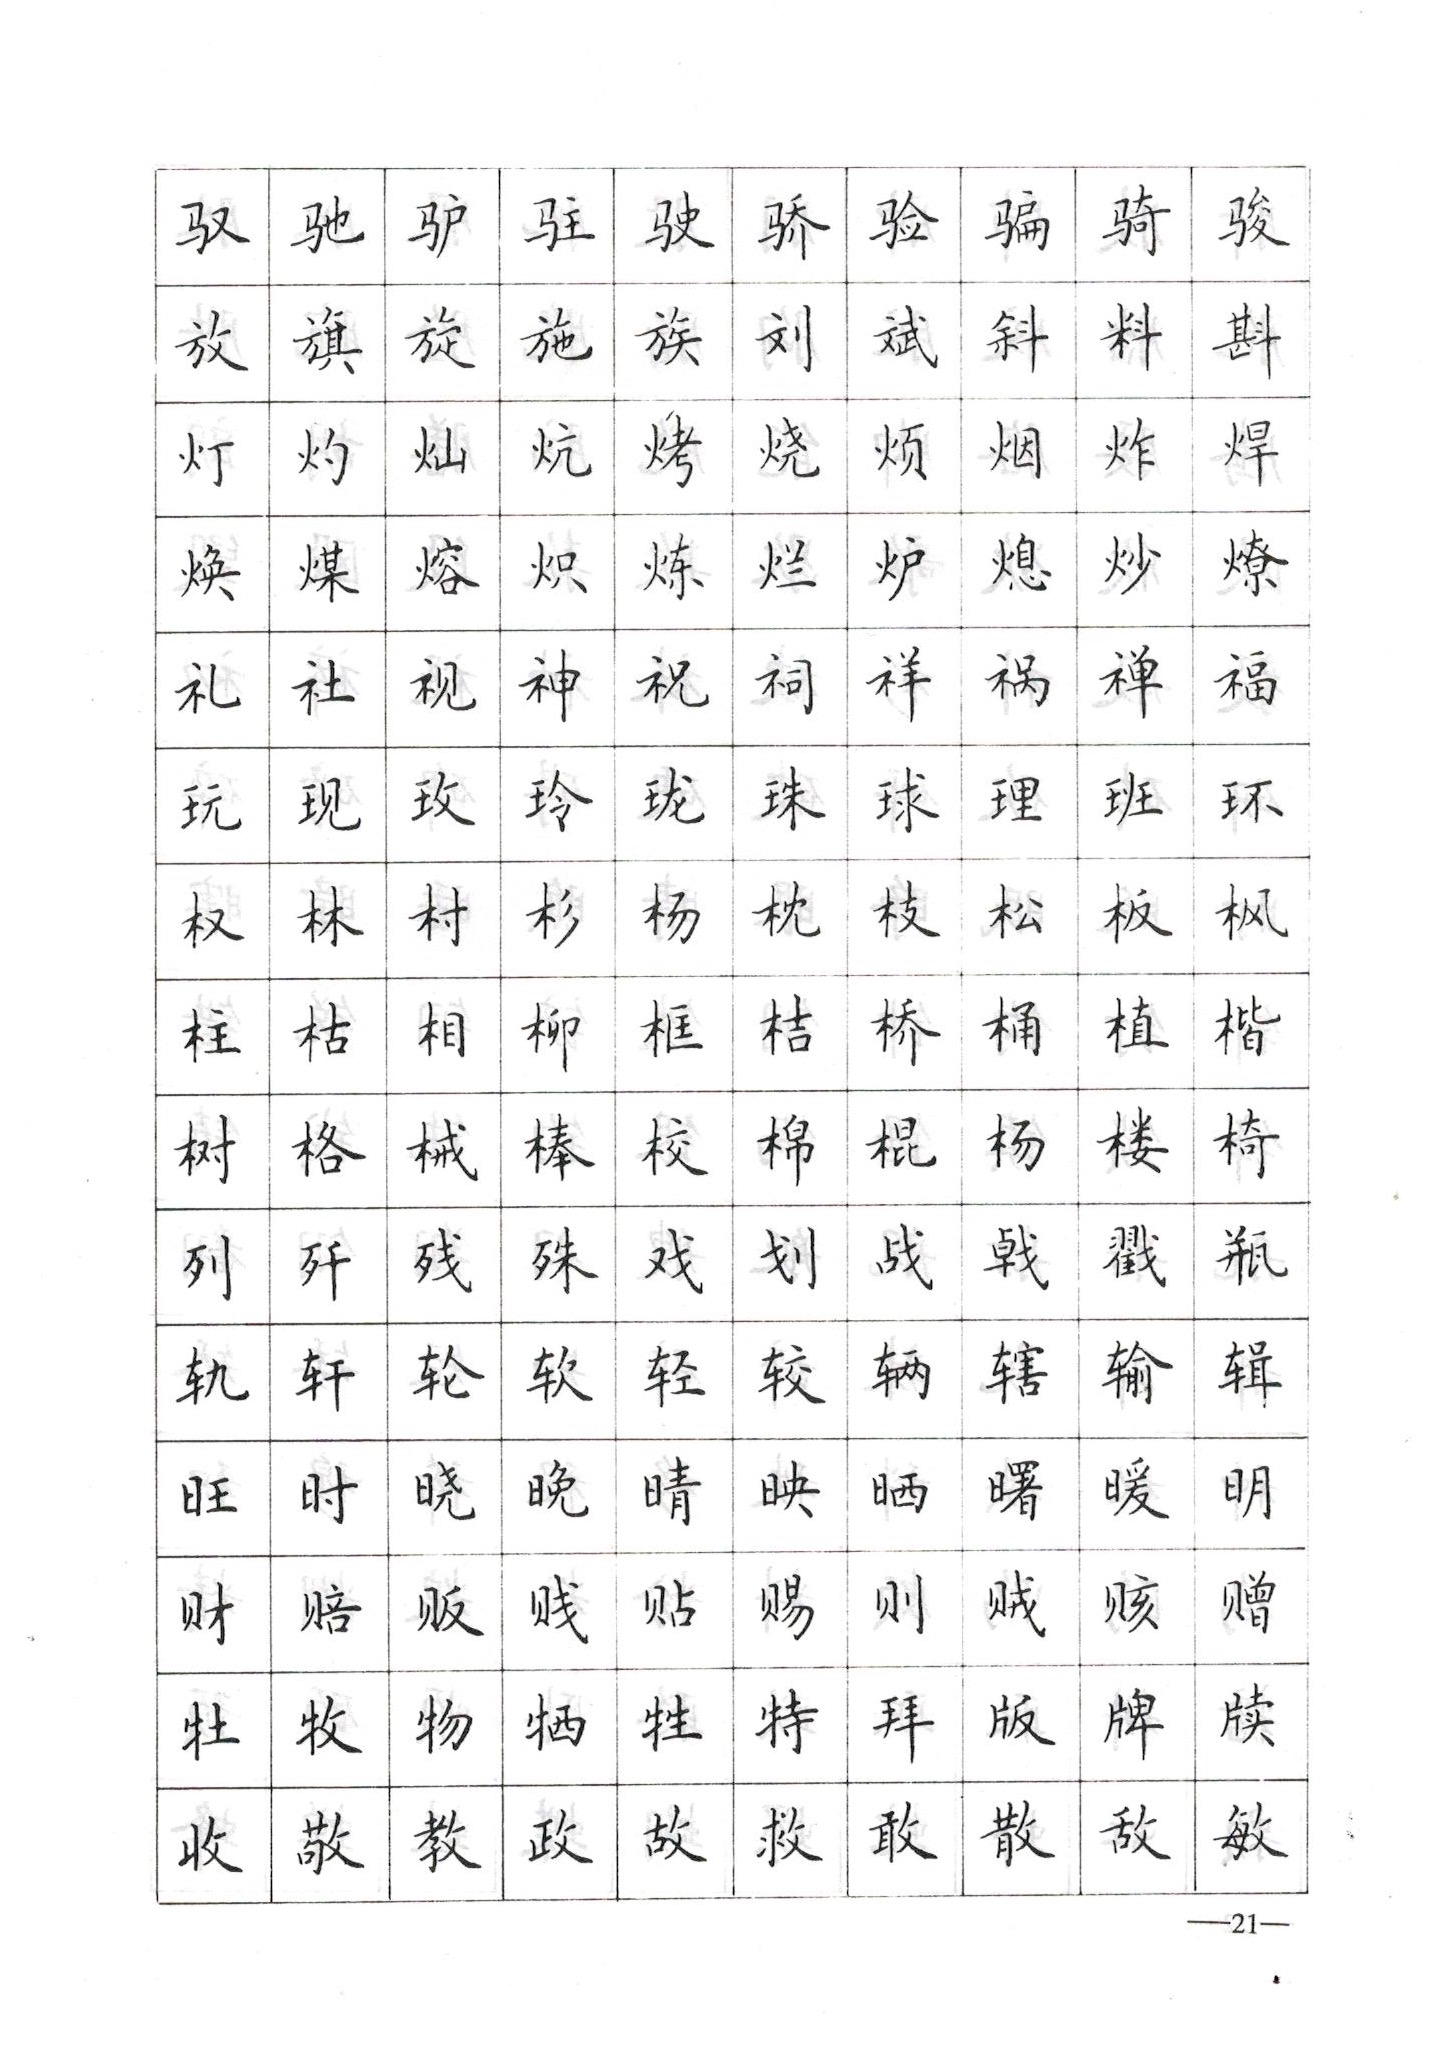 驭驰驴驻驶骄验骗骑骏
放旗旋施族刘斌斜料斟
灯灼灿炕烤烧烦烟炸焊
焕煤熔炽炼烂炉熄炒燎
礼社视神祝祠祥祸禅福
玩现玫玲珑珠球理班环
权林村杉杨枕枝松板枫
柱枯相柳框桔桥桶植楷
树格械棒校棉棍杨楼椅
列歼残殊戏划战戟戳瓶
轨轩轮软轻较辆辖输辑
旺时晓晚晴映晒曙暖明
财赔贩贱贴赐则贼赅赠
牡牧物牺牲特拜版牌牍
收敬教政故救敢散敌敏
—21—